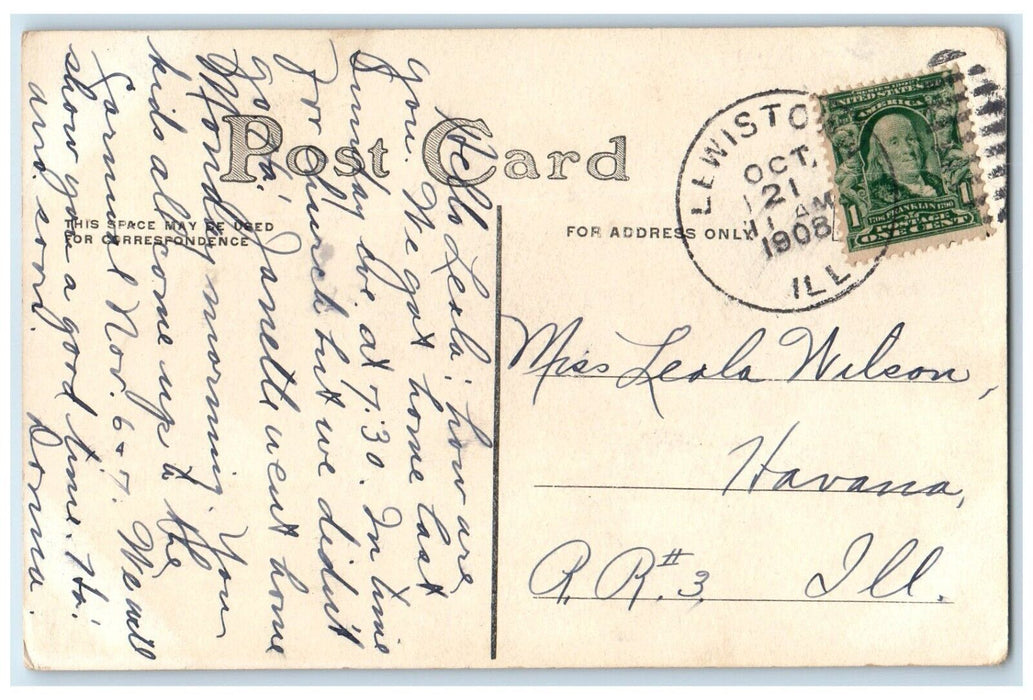 Post Card
THIS SPACE MAY BE USED
FOR CORRESPONDENCE
FOR ADDRESS ONLY
LEWISTO
OCT.
21
11 AM
1908
ILL
UNITED STATES
AMERICA
FRANKLIN
1 POSTAGE 1
ONE CENT
Hello Leola; how are
you. We got home last
Sunday Eve. at 7:30. In time
for church but we didn't
go. Janette went home
Monday morning. You
kids all come up to the
Carnival Nov. 6 & 7. We will
show you a good time. Ha!
ans soon. Dorna.
Miss Leola Wilson,
Havana,
R. R. # 3, Ill.